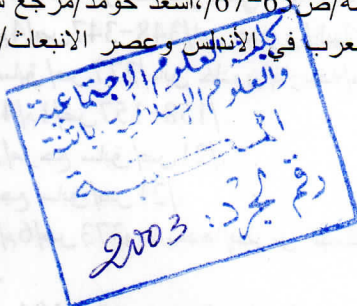 /ص65-67/،أسعد حومد/مرجع س
لعرب في الأندلس وعصر الانبعاث/
كلية العلوم الاجتماعية
والعلوم الإسلامية باتنة
المكتبة
رقم الجرد: 2003